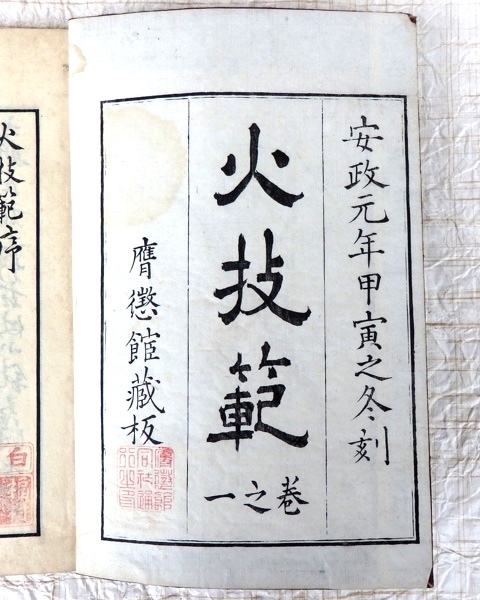 安政元年甲寅之冬刻
火技範
巻之一
膺懲館藏板
火技範序